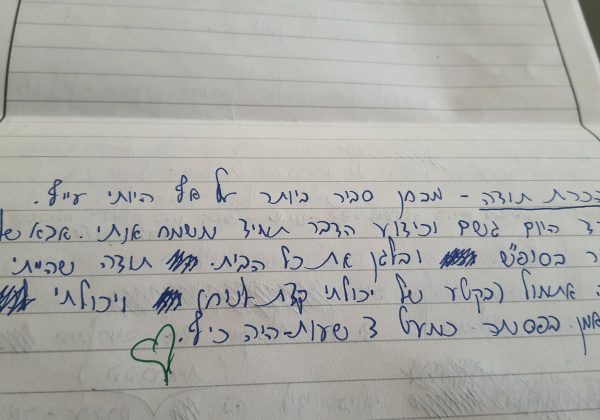 הכרת תודה - מבחן סביר ביותר על אף היותי עייף.
רד היום גשם וכידוע הדבר תמיד משמח אותי. אבא של
ר בסופ"ש ובלגן את כל הבית. תודה שהייתי
ה אתמול (בקטע של יכולתי קצת לנוח) ויכולתי
אמן בפסנתר כמעט 3 שעות-היה כיף.